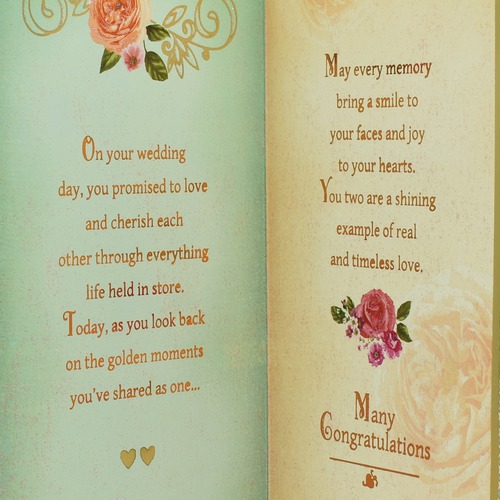 On your wedding
day, you promised to love
and cherish each
other through everything
life held in store.
Today, as you look back
on the golden moments
you've shared as one...
May every memory
bring a smile to
your faces and joy
to your hearts.
You two are a shining
example of real
and timeless love.
Many
Congratulations